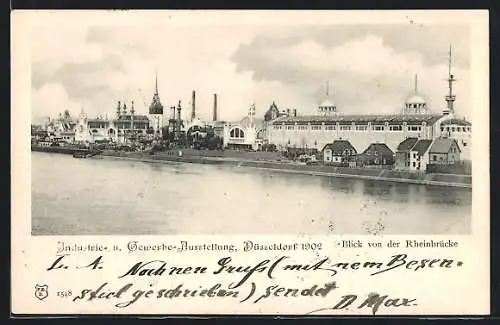 Industrie- u. Gewerbe-Ausstellung, Düsseldorf 1902 - Blick von der Rheinbrücke
L. A. Noch nen Gruß (mit nem Besen-
1518 stiel geschrieben) sendet
D Max.